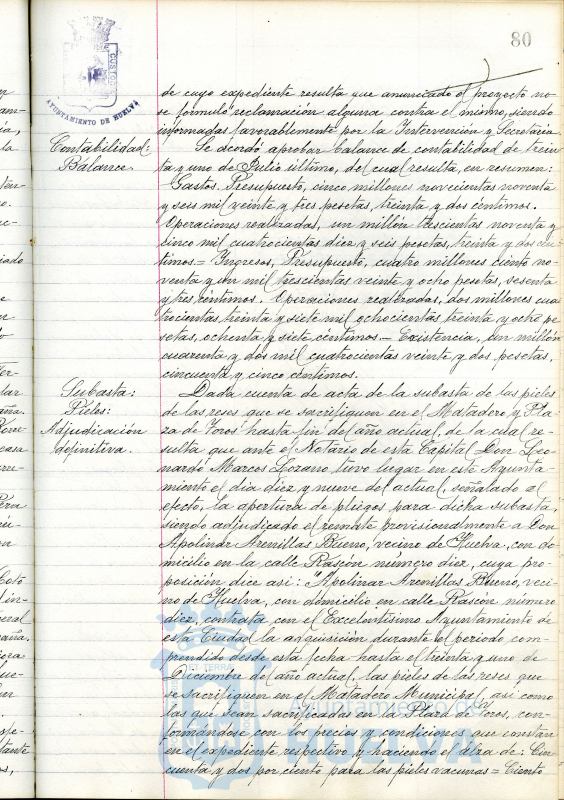 80
AYUNTAMIENTO DE HUELVA
de cuyo expediente resulta que anunciado el proyecto no
se formuló reclamación alguna contra el mismo, siendo
informadas favorablemente por la Intervención y Secretaría
Contabilidad:
Balance.
Se acordó aprobar balance de contabilidad de trein
ta y uno de Julio último, del cual resulta, en resumen:
Gastos. Presupuesto, cinco millones novecientas noventa
y seis mil veinte y tres pesetas, treinta y dos céntimos.
Operaciones realizadas, un millón trescientas noventa y
cinco mil cuatrocientas diez y seis pesetas, treinta y dos cén
timos.= Ingresos, Presupuesto, cuatro millones ciento no-
venta y un mil trescientas veinte y ocho pesetas, sesenta
y tres céntimos. Operaciones realizadas, dos millones cua
trocientas treinta y siete mil ochocientas treinta y ocho pe
setas, ochenta y siete céntimos.- Existencia, un millón
cuarenta y dos mil cuatrocientas veinte y dos pesetas,
cincuenta y cinco céntimos.
Subasta:
Pieles:
Adjudicación
definitiva.
Dada cuenta de acta de la subasta de las pieles
de las reses que se sacrifiquen en el Matadero y Pla-
za de Toros hasta fin del año actual, de la cual re-
sulta que ante el Notario de esta Capital Don Leo-
nardo Marcos Lozano tuvo lugar en este Ayunta-
miento el día diez y nueve del actual, señalado al
efecto, la apertura de pliegos para dicha subasta,
siendo adjudicado el remate provisionalmente a Don
Apolinar Arenillas Bueno, vecino de Huelva, con do-
micilio en la calle Rascón número diez, cuya pro-
posición dice así: "Apolinar Arenillas Bueno, veci-
no de Huelva, con domicilio en calle Rascón número
diez, contrata con el Excelentísimo Ayuntamiento de
esta Ciudad la adquisición durante el período com-
prendido desde esta fecha hasta el treinta y uno de
Diciembre del año actual, las pieles de las reses que
se sacrifiquen en el Matadero Municipal, así como
las que sean sacrificadas en la Plaza de Toros, con-
formándose con los precios y condiciones que constan
en el expediente respectivo y haciendo el alza de: Cin
cuenta y dos por ciento para las pieles vacunas = Ciento
Ayuntamiento de
HUELVA